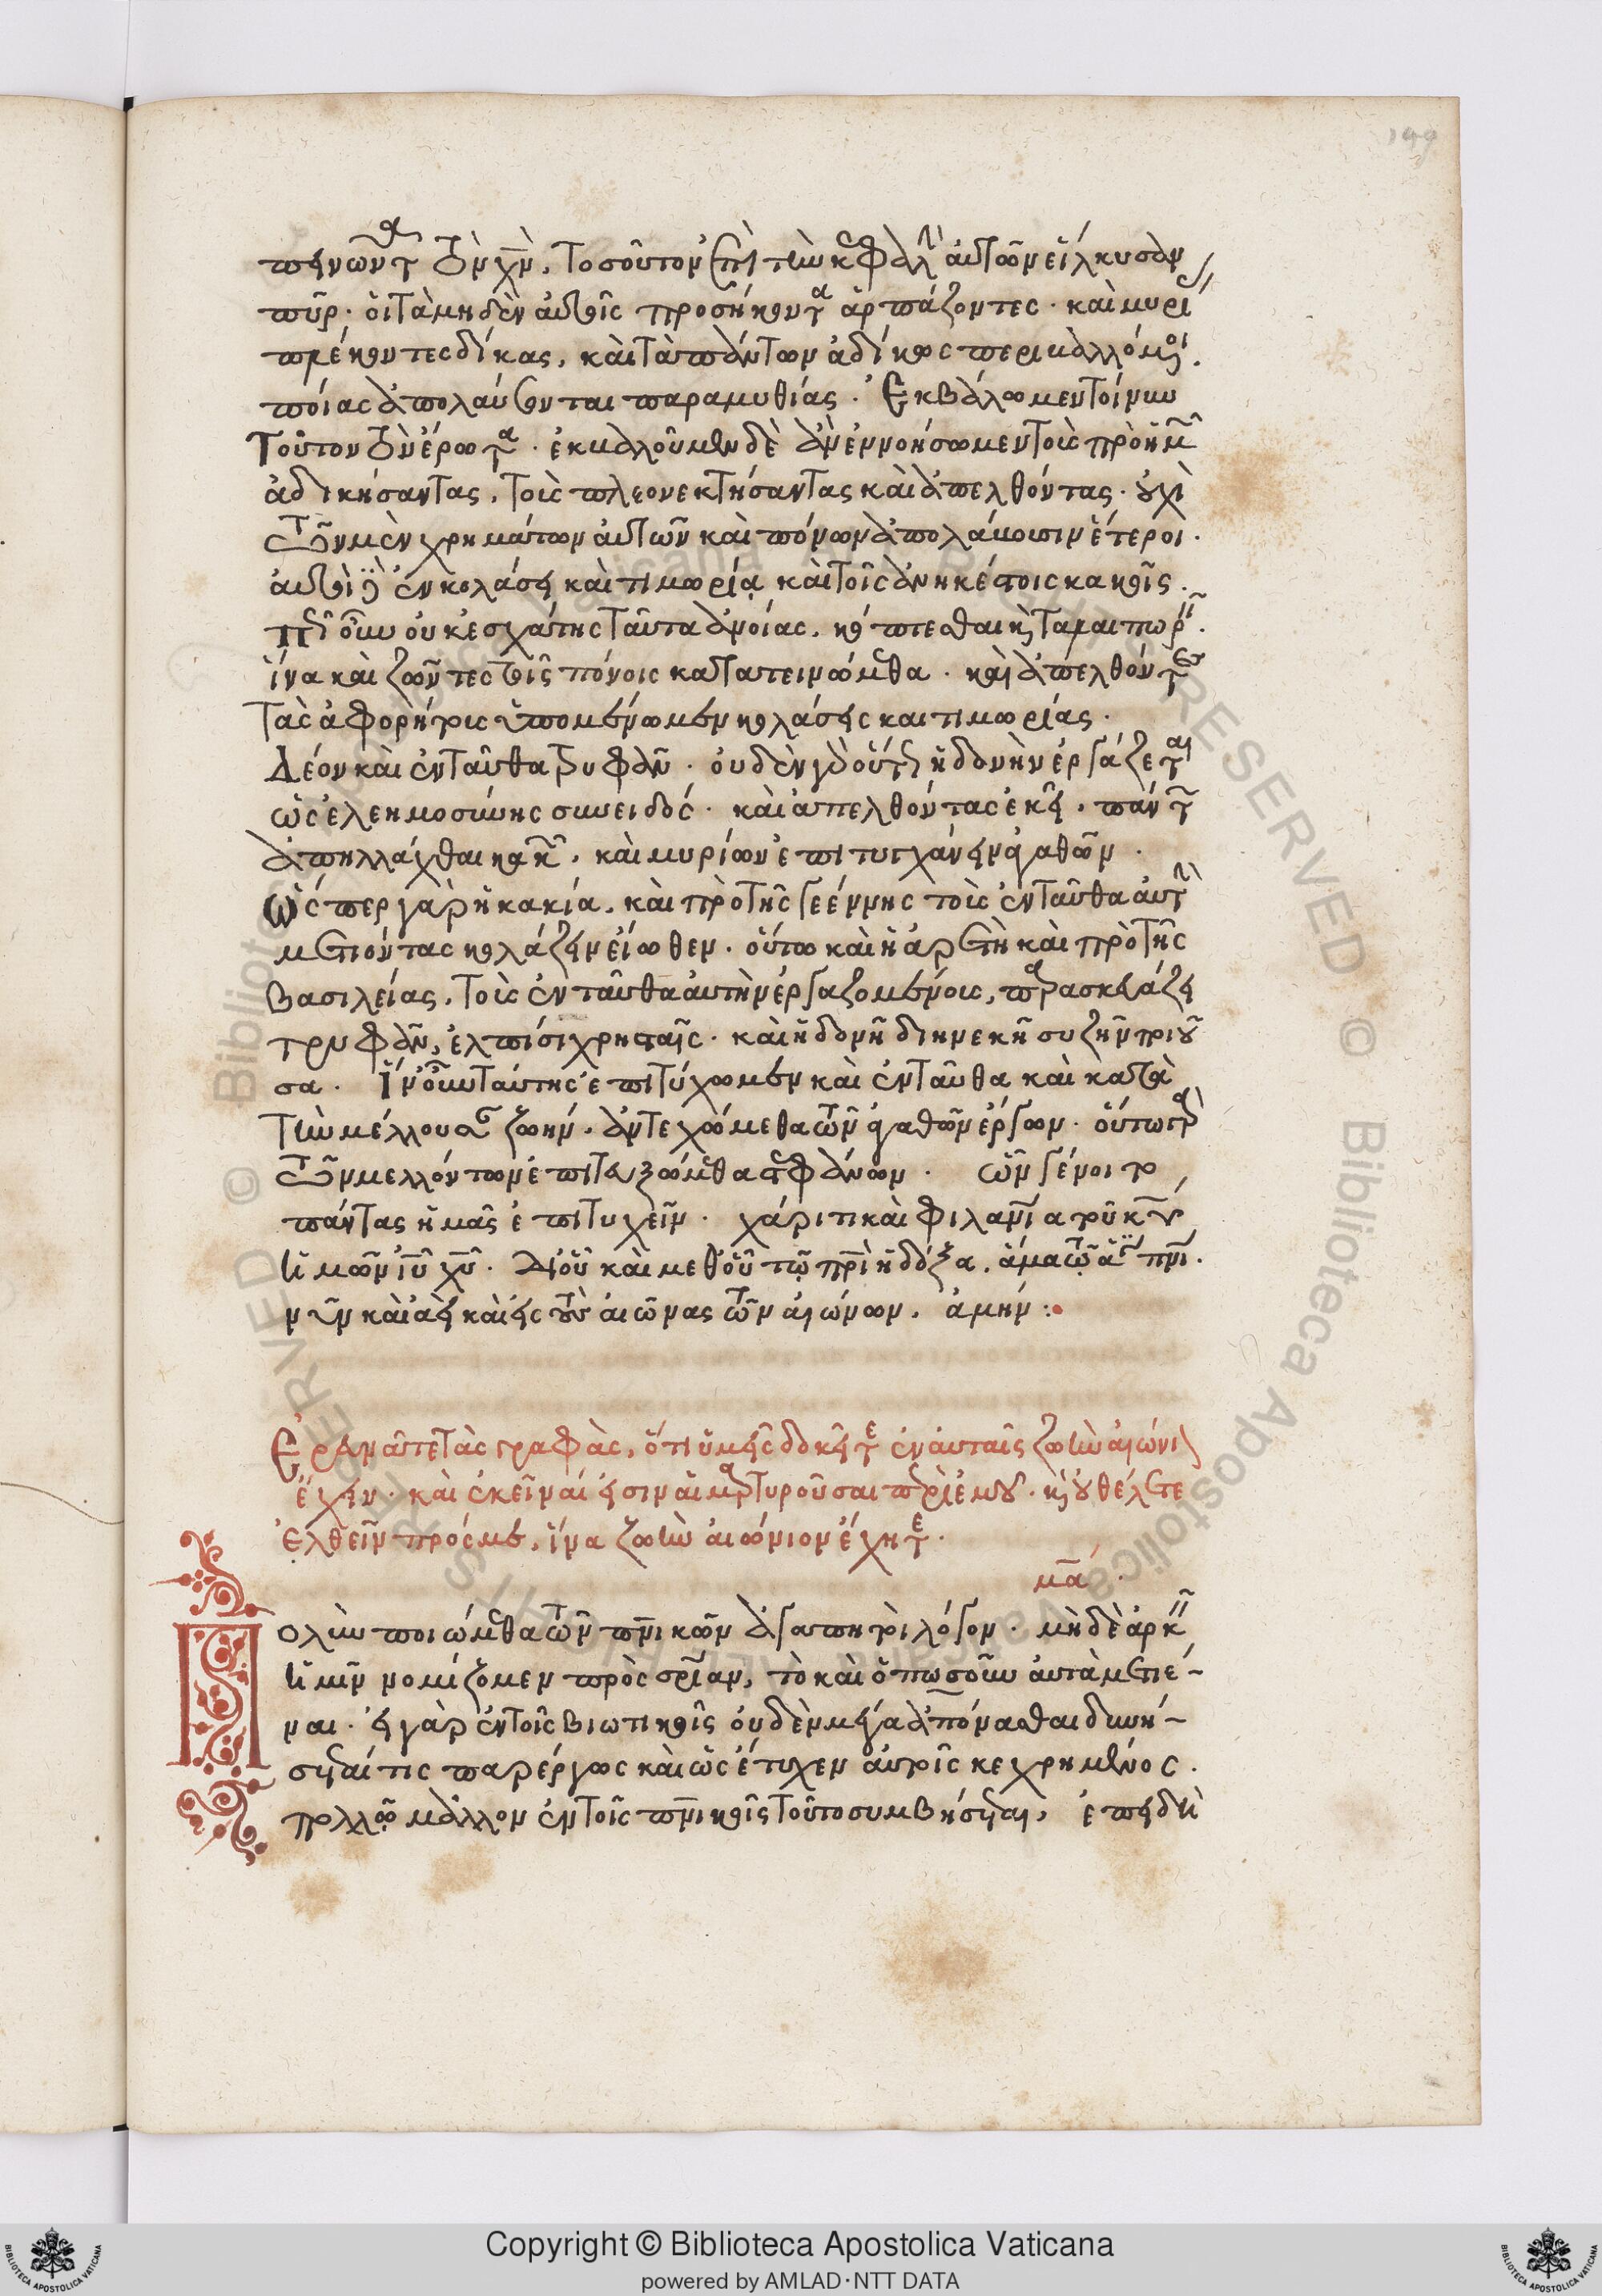 149
πεινῶντα τὸν χν̄. τοσοῦτον ἐπὶ τὴν κεφαλὴν αὐτῶν εἵλκυσαν
πῦρ· οἱ τὰ μηδὲν αὐτοῖς προσήκοντα ἁρπάζοντες· καὶ μυρί
πλέκοντες δίκας, καὶ τὰ πάντων ἀδίκως περιβαλλόμενοι.
ποίας ἀπολαύσονται παραμυθίας. Ἐκβάλωμεν τοίνυν
τοῦτον τὸν ἔρωτα· ἐκβαλοῦμεν δὲ ἂν ἐννοήσωμεν τοὺς πρὸ ἡμῶν
ἀδικήσαντας, τοὺς πλεονεκτήσαντας καὶ ἀπελθόντας· οὐχὶ
τῶν μὲν χρημάτων αὐτῶν καὶ πόνων ἀπολαύουσιν ἕτεροι·
αὐτοὶ δὲ ἐν κολάσει καὶ τιμωρίᾳ καὶ τοῖς ἀνηκέστοις κακοῖς.
πῶς οὖν οὐκ ἐσχάτης ταῦτα ἀνοίας, κόπτεσθαι καὶ ταλαιπωρεῖν.
ἵνα καὶ ζῶντες τοῖς πόνοις κατατεινώμεθα· καὶ ἀπελθόντες
τὰς ἀφορήτους ὑπομένωμεν κολάσεις και τιμωρίας.
Δέον καὶ ἐνταῦθα τρυφᾶν· οὐδὲν γὰρ οὕτως ἡδονὴν ἐργάζεται
ὡς ἐλεημοσύνης συνειδός· καὶ ἀπελθόντας ἐκεῖ, πάντων
ἀπηλλάχθαι κακῶν, καὶ μυρίων ἐπιτυγχάνειν ἀγαθῶν.
Ὥσπερ γὰρ ἡ κακία, καὶ πρὸ τῆς γεέννης τοὺς ἐνταῦθα αὐτὴν
μετιόντας κολάζειν εἴωθεν· οὕτω καὶ ἡ ἀρετὴ καὶ πρὸ τῆς
βασιλείας, τοὺς ἐνταῦθα αὐτὴν ἐργαζομένους, παρασκευάζει
τρυφᾶν, ἐλπίσι χρησταῖς· καὶ ἡδονῇ διηνεκῇ συζῆν ποιοῦ
σα. Ἵν' οὖν ταύτης ἐπιτύχωμεν καὶ ἐνταῦθα καὶ κατὰ
τὴν μέλλουσαν ζωήν, ἀντεχώμεθα τῶν ἀγαθῶν ἔργων· οὕτω γὰρ
τῶν μελλόντων ἐπιτευξώμεθα στεφάνων. ὧν γένοιτο
πάντας ἡμᾶς ἐπιτυχεῖν· χάριτι καὶ φιλανν̄ία τοῦ κυ̅
ἡμῶν ιυ̅ χυ̅. δι' οὗ καὶ μεθ' οὗ τῷ πρ̅ι ἡ δόξα, ἅμα τῷ ἁγίῳ πνι̅.
νῦν καὶ ἀεὶ καὶ εἰς τοὺς αἰῶνας τῶν αἰώνων. ἀμήν:
Ἐρευνᾶτε τὰς γραφὰς, ὅτι ὑμεῖς δοκεῖτε ἐν αὐταῖς ζωὴν αἰώνιον
ἔχειν· καὶ ἐκεῖναί εἰσιν αἱ μαρτυροῦσαι περὶ ἐμοῦ· καὶ οὐ θέλετε
ἐλθεῖν πρός με, ἵνα ζωὴν αἰώνιον ἔχητε·
μα̅
Πολὺν ποιώμεθα τῶν πν̅ικῶν ἀγαπητοὶ λόγον· μὴ δὲ ἀρκεῖν
ἡμῖν νομίζομεν πρὸς σρ̅ίαν, τὸ καὶ ὁπωσοῦν αὐτὰ μετιέ-
ναι· εἰ γὰρ ἐν τοῖς βιωτικοῖς οὐδὲν μέγα ἀπόνασθαι δυνή-
σεταί τις παρέργως καὶ ὡς ἔτυχεν αὐτοῖς κεχρημένος.
πολλῷ μᾶλλον ἐν τοῖς πν̅ικοῖς τοῦτο συμβήσεται, ἐπειδὴ
Copyright © Biblioteca Apostolica Vaticana
powered by AMLAD·NTT DATA